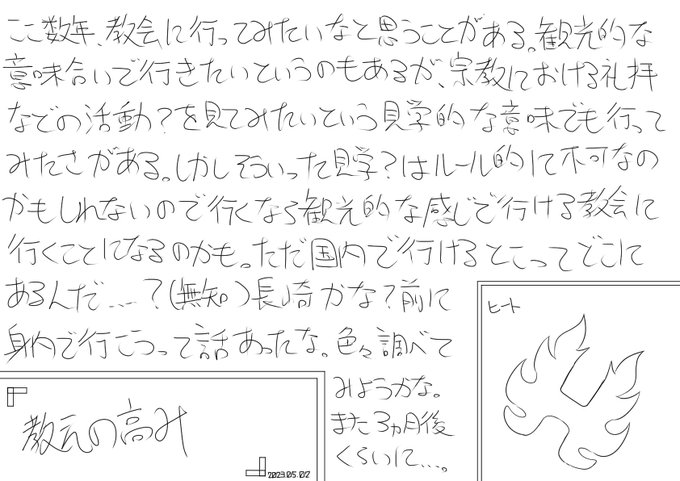 ここ数年、教会に行ってみたいなと思うことがある。観光的な
意味合いで行きたいというのもあるが、宗教における礼拝
などの活動?を見てみたいという見学的な意味でも行って
みたさがある。しかしそういった見学?はルール的に不可なの
かもしれないので行くなら観光的な感じで行ける教会に
行くことになるのかも。ただ国内で行けるとこってどこに
あるんだ……?(無知)長崎かな?前に
身内で行こうって話あったな。色々調べて
みようかな。
また3ヵ月後
くらいに……。
ヒート
教元の高み
2023.05.02